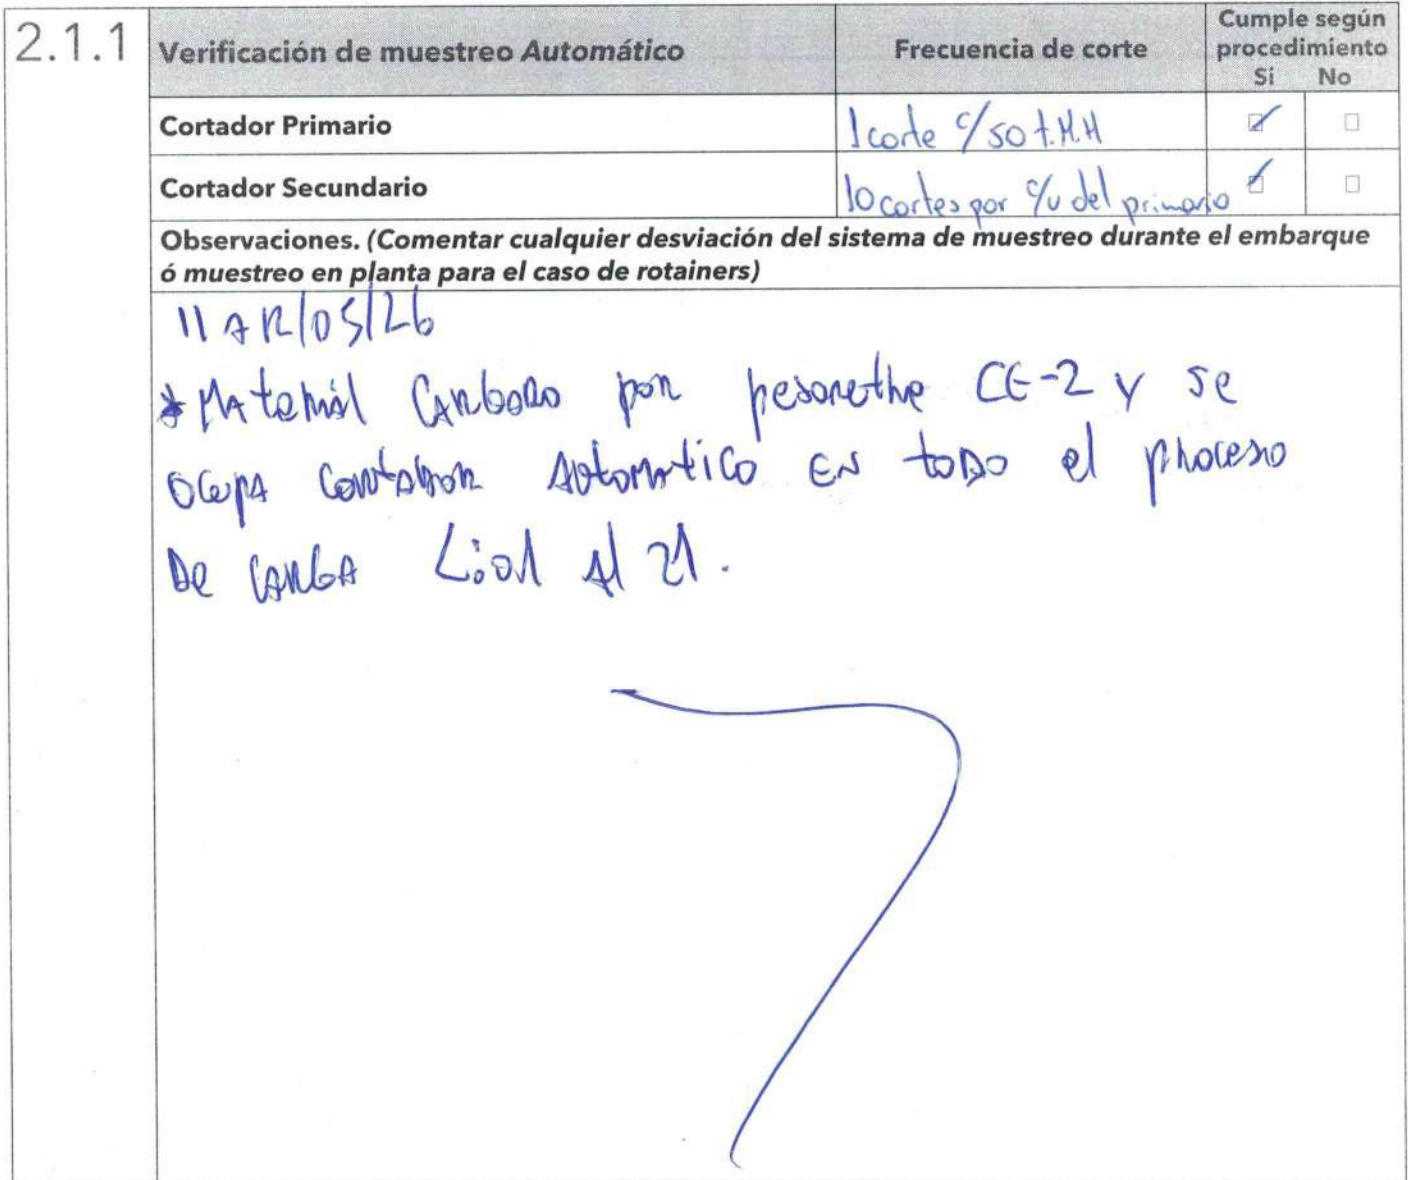 2.1.1
Verificación de muestreo Automático
Frecuencia de corte
Cumple según procedimiento
Si No
Cortador Primario
1 corte c/50 t.M.H
Cortador Secundario
10 cortes por c/u del primario
Observaciones. (Comentar cualquier desviación del sistema de muestreo durante el embarque
ó muestreo en planta para el caso de rotainers)
11 12/05/26
* Material Cargado por CE-2 y se
ocupa Cortador Automatico EN todo el proceso
De carga al 21.